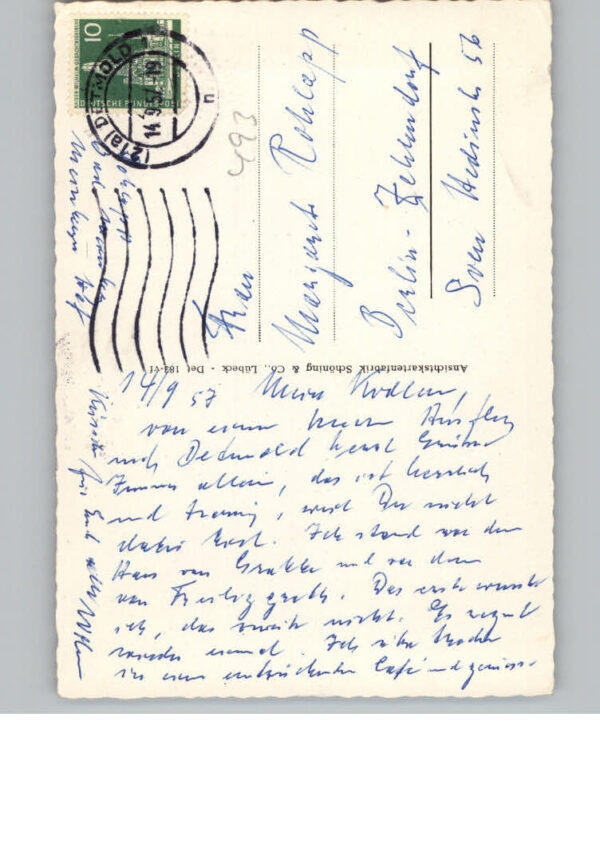 10
DEUTSCHE BUNDESPOST
(21a) DETMOLD 1
14.9.57.19
n
493
Frau
Margarete Rohlapp
Berlin-Zehlendorf
Sven Hedinstr 56
Ansichtskartenfabrik Schöning & Co., Lübeck · Det 183
14/9 57 Mein
von einem Ausflug
nach Detmold Grüsse
Immer allein, das ist herrlich
und traurig, weil Du nicht
dabei bist. Ich stand vor dem
Haus von Grabbe und vor dem
von Freiligrath. Das erste wusste
ich, das zweite nicht. Es regnet
wieder einmal. Ich sitze
in einem entzückenden Café und geniesse
für Euch alle